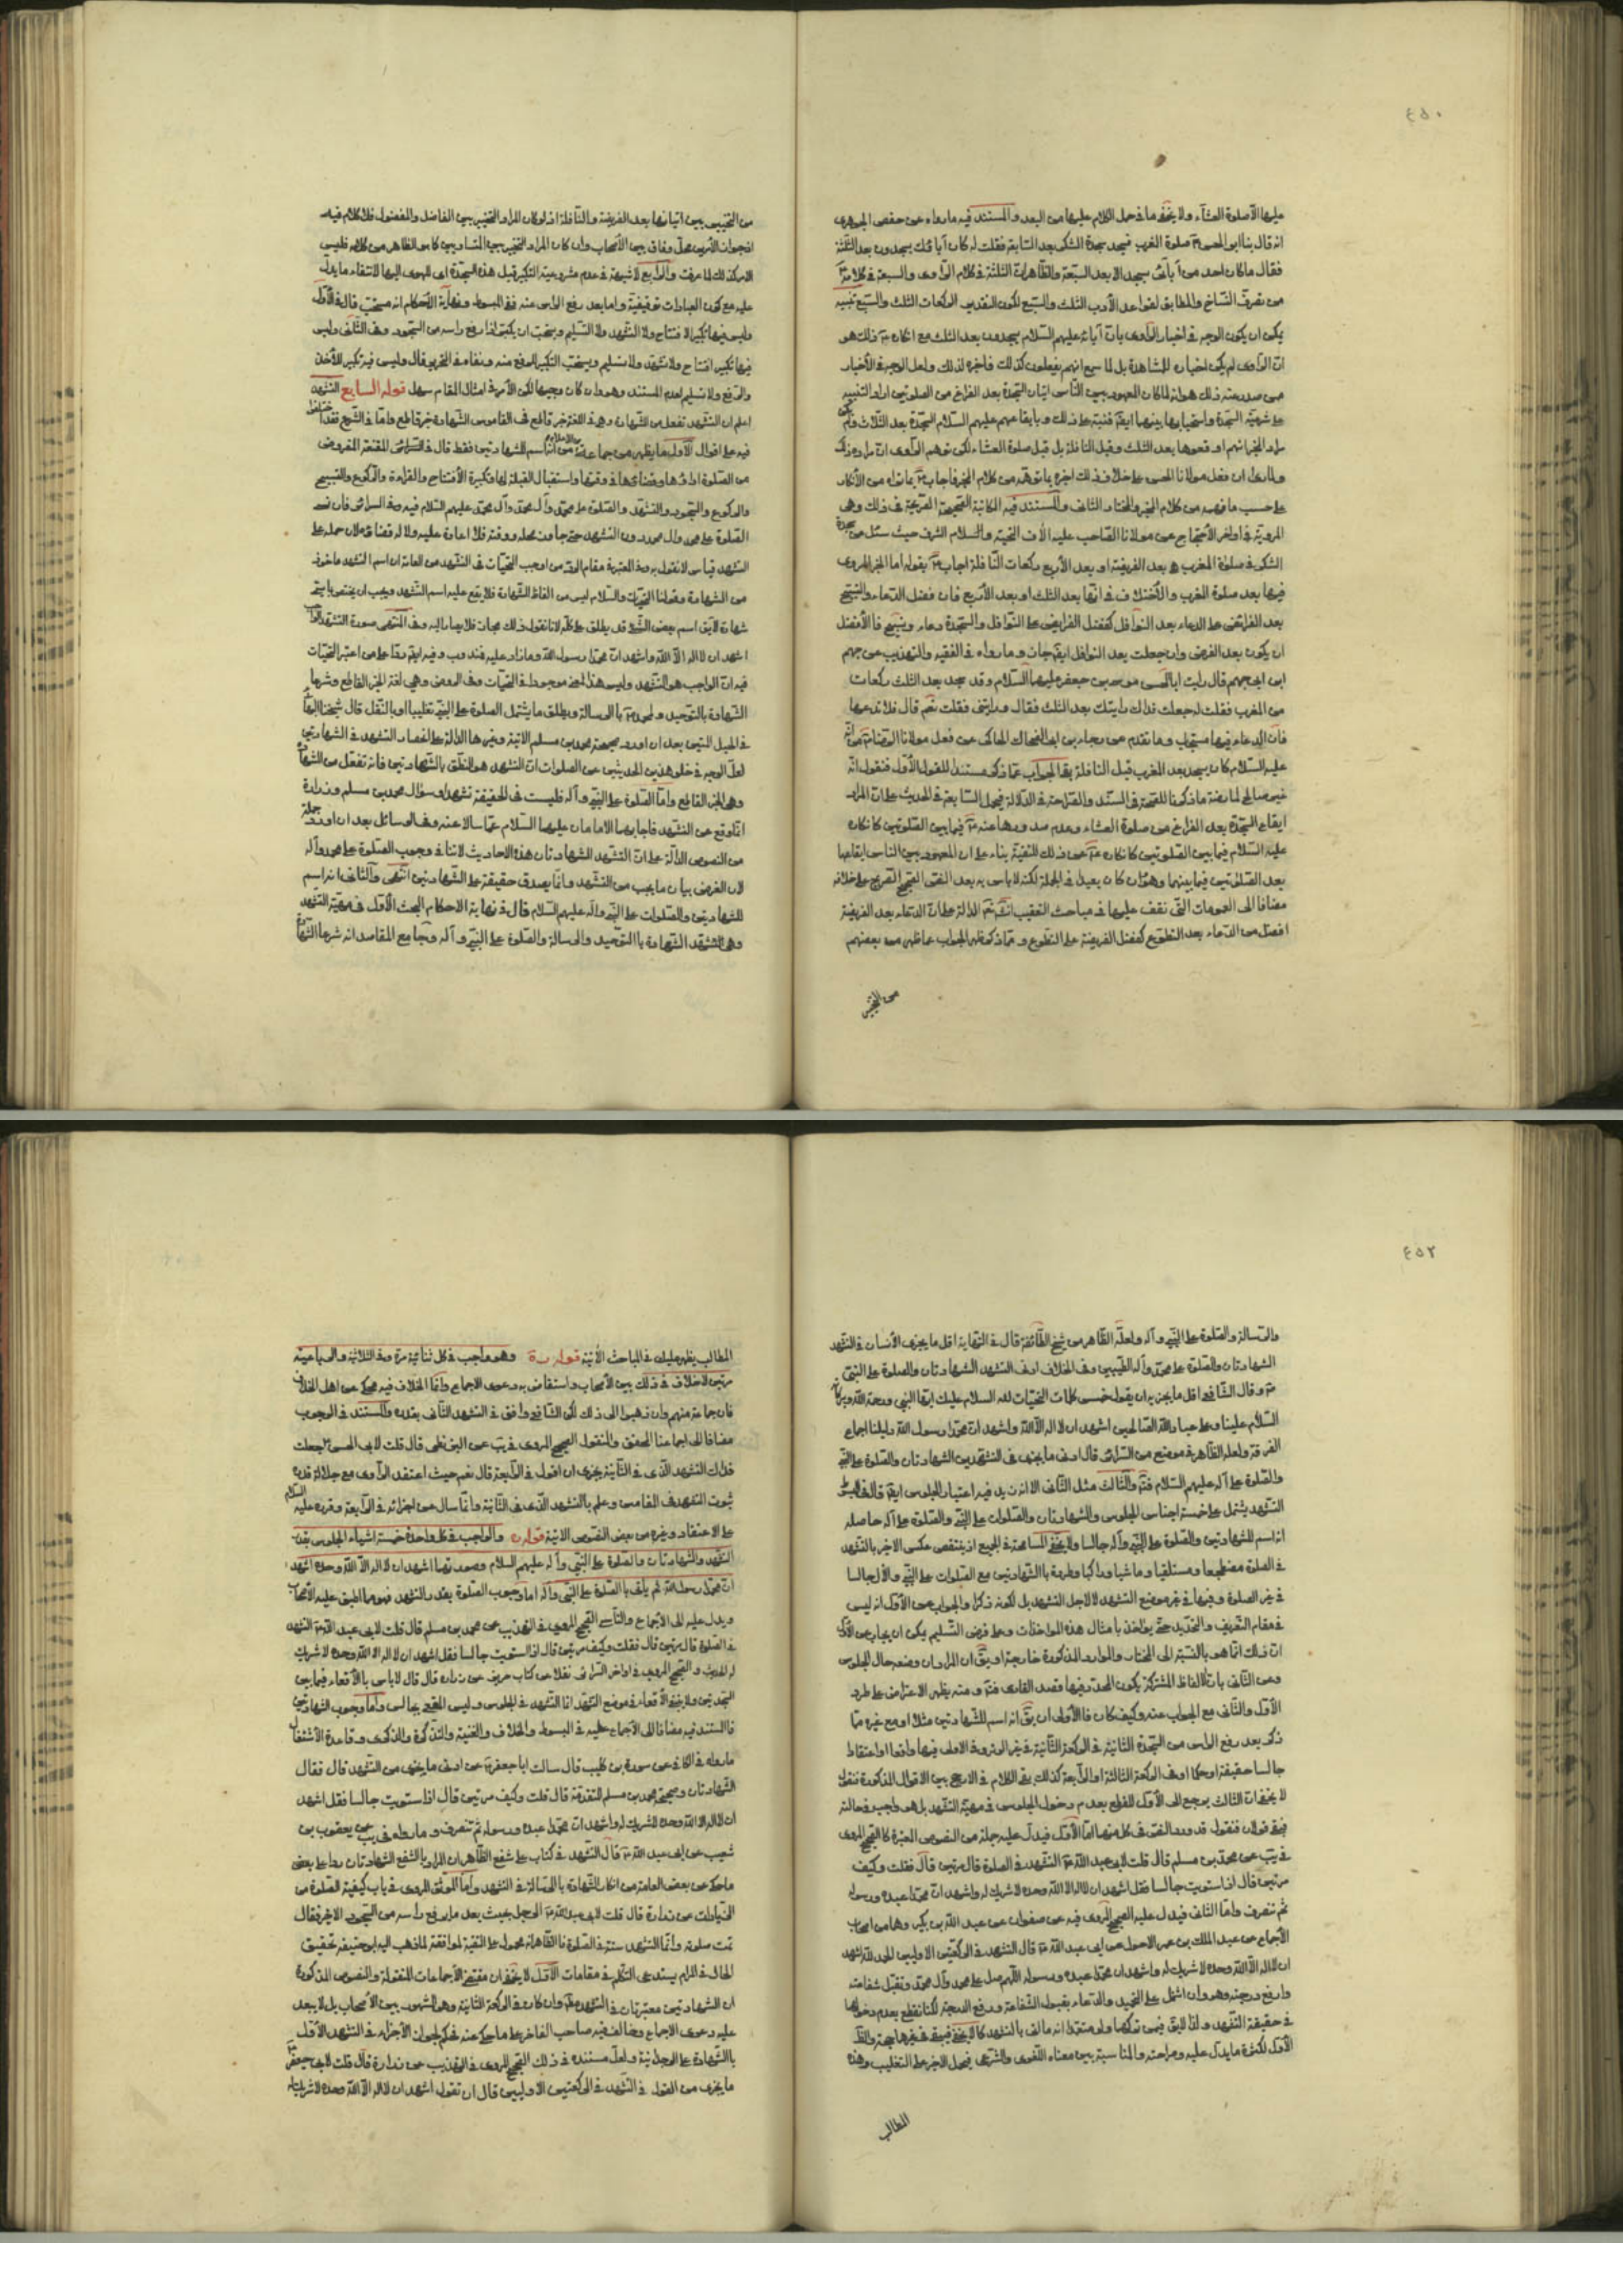 ٤٥٠
عليها الاصلوة العشآء ولا يخفى ما فى حمل الكلام عليها من البعد والمستند فيه ما رواه عن حفص الجوهرى
انه قال بنا ابو الحسن صلوة المغرب فسجد سجدة الشكر بعد السابعة فقلت له كان آباؤك يسجدون بعد الثلثة
فقال ما كان احد من آبائى يسجد الا بعد السبعة والظاهر ان الثلثة فى كلام الراوى والسبعة فى كلامه
من تصرف النساخ والمطابق لقواعد الأدب الثلث والسبع لكون التقدير الركعات الثلث والسبع تنبيه
يمكن ان يكون الوجه فى اخبار الراوى بان آبائه عليهم السلام يسجدون بعد الثلث مع انكاره ذلك هو
ان الراوى لم يكن اخباره للمشاهدة بل لما سمع انهم يفعلون كذلك فاخبره لذلك ولعل الوجه فى الأخبار
عمن صدر عنه ذلك هو انه لما كان المعهود بين الناس اتيان السجدة بعد الفراغ من الصلوتين اراد التنبيه
على شرعية السجدة واستحبابها بينهما ايضا فنبه على ذلك وبايقاعهم عليهم السلام السجدة بعد الثلاث ولم يكن
مراد المخبر انهم اوقعوها بعد الثلث وقبل النافلة بل قبل صلوة العشاء لكن توهم الراوى ان مراده ذلك
ولما راى ان فعل مولانا الحسن على خلاف ذلك اخبره بما توهمه من كلام المخبر فاجاب بما تراه من الأنكار
على حسب ما فهمه من كلام المخبر والمختار الثانى والمستند فيه المكاتبة الصحيحة الصريحة فى ذلك وهى
المروية فى اواخر الأحتجاج عن مولانا الصاحب عليه الآف التحية والسلام الشرف حيث سئل عن سجدة
الشكر فى صلوة المغرب هى بعد الفريضة او بعد الأربع ركعات النافلة اجاب بقوله اما الخبر المروى
فيها بعد صلوة المغرب والأختلاف فى انها بعد الثلث او بعد الأربع فان فضل الدعاء والتسبيح
بعد الفرائض على الدعاء بعد النوافل كفضل الفرايض على النوافل والسجدة دعاء وتسبيح فالأفضل
ان يكون بعد الفرض وان جعلت بعد النوافل ايضا جاز وما رواه فى الفقيه والتهذيب عن جهم
ابن ابى جهم قال رايت ابا الحسن موسى بن جعفر عليهما السلام وقد سجد بعد الثلث ركعات
من المغرب فقلت له جعلت فداك رايتك بعد الثلث فقال ورايتنى فقلت نعم قال فلا تدعها
فان الدعاء فيها مستجاب وما تقدم من رجاء بن ابى الضحاك الحاكى عن فعل مولانا الرضا من انه
عليه السلام كان يسجد بعد المغرب قبل النافلة بقى الجواب عما ذكر مستندا للقول الأول فنقول انه
غير صالح لمعارضة ما ذكرنا للصحة فى السند والصراحة فى الدلالة فيحمل السابعة فى الحديث على ان المراد
ايقاع السجدة بعد الفراغ من صلوة العشاء وعدم صدورها عنه فيما بين الصلوتين كانكاره
عليه السلام فيما بين الصلوتين كانكاره عن ذلك للتقية بناء على ان المعهود بين الناس ايقاعها
بعد الصلوتين فيما بينهما وهو وان كان بعيدا فى الجملة لكنه لا باس به بعد النص الصحيح الصريح على خلافه
مضافا الى العمومات التى نقف عليها فى مباحث التعقيب انشاء الله الدالة على ان الدعاء بعد الفريضة
افضل من الدعاء بعد التطوع كفضل الفريضة على التطوع ومما ذكر ظهر الجواب عما ظهر من بعضهم
من التخيير
من التخيير بين اتيانها بعد الفريضة والنافلة اذ لو كان المراد التخيير بين الفاضل والمفضول فلا كلام فيه
اذ جواز الأمرين محل وفاق بين الأصحاب وان كان المراد التخيير بين المتساويين كما هو الظاهر من كلامه فليس
الامر كذلك لما عرفت والرابع لا شبهة فى عدم مشروعية التكبير قبل هذه السجدة اى للهوى اليها لانتفاء ما يدل
عليه مع كون العبادات توقيفية واما بعد رفع الراس عنه ففى المبسوط ونهاية الأحكام انه مستحب قال فى الأول
وليس فيها تكبيرة الافتتاح ولا التشهد ولا التسليم ويستحب ان يكبر اذا رفع راسه من السجود وفى الثانى وليس
فيها تكبير افتتاح ولا تشهد ولا تسليم ويستحب التكبير للرفع منه ونفاه فى التحرير قال وليس فيه تكبير للأخذ
والرفع ولا تسليم لعدم المستند وهو وان كان وجيها لكن الأمر فى امثال المقام سهل قوله السابع التشهد
اعلم ان التشهد تفعل من الشهادة وهى فى اللغة خبر قاطع ففى القاموس الشهادة خبر قاطع واما فى الشرع فقد اختلفوا
فيه على اقوال الأول ما يظهر من جماعة من الاعلام من انه اسم للشهادتين فقط قال فى السرائر المقنعة المفروض
من الصلوة اداؤها وقضاؤها فى وقتها واستقبال القبلة لها وتكبيرة الأفتتاح والقراءة والركوع والتسبيح
والركوع والسجود والتشهد والصلوة على محمد وآل محمد عليهم السلام فيه وفى السرائر فان نسى
الصلوة على محمد وآل محمد دون التشهد حتى جاوز محله ووقته فلا اعادة عليه ولا له قضائه لان حمله على
التشهد قياس لا نقول به وفى المعتبر مقام الرد من اوجب التحيات فى التشهد من العامة ان اسم التشهد ماخوذ
من الشهادة وقولنا التحيات والسلام ليس من الفاظ الشهادة فلا يقع عليه اسم التشهد ويجب ان يختص بما يسمى
شهادة لا يق اسم بعض الشئ قد يطلق على كله لانا نقول ذلك مجاز فلا يصار اليه وفى المنتهى صورة التشهد الواجب
اشهد ان لا اله الا الله واشهد ان محمدا رسول الله وما زاد عليه فمندوب وفيه ايضا ردا على من اعتبر التحيات
فيه ان الواجب هو التشهد وليس هذا المعنى موجودا فى التحيات وفى الروض وهى لغة الخبر القاطع وشرعا
الشهادة بالتوحيد ولمحمد بالرسالة ويطلق ما يشمل الصلوة على النبى تغليبا او بالنقل قال شيخنا البهائى
فى الحبل المتين بعد ان اورد صحيحة محمد بن مسلم الاتية وغيرها الدالة على انحصار التشهد فى الشهادتين
لعل الوجه فى خلو هذين الحديثين عن الصلوات ان التشهد هو النطق بالشهادتين فانه تفعل من الشهادة
وهى الخبر القاطع واما الصلوة على النبى وآله فليست فى الحقيقة تشهدا وسؤال محمد بن مسلم وزرارة
انما وقع عن التشهد فاجابهما الامامان عليهما السلام عما سالا عنه وفى الوسائل بعد ان اورد جملة
من النصوص الدالة على ان التشهد الشهادتان هذه الاحاديث لا تنافى وجوب الصلوة على محمد وآله
لان الغرض بيان ما يجب من التشهد وانما يصدق حقيقة على الشهادتين انتهى والثانى انه اسم
للشهادتين والصلوات على النبى وآله عليهم السلام قال فى نهاية الاحكام البحث الأول فى مهية التشهد
وهى التشهد الشهادة بالتوحيد والرسالة والصلوة على النبى وآله وفى جامع المقاصد انه شرعا الشهادة
٤٥٢
والرسالة والصلوة على النبى وآله ولعله الظاهر من شيخ الطائفة قال فى النهاية اقل ما يجزى الأنسان فى التشهد
الشهادتان والصلوة على محمد وآله الطيبين وفى الخلاف ادنى التشهد الشهادتان والصلوة على النبى
وقال الشافعى اقل ما يجزيه ان يقول خمس كلمات التحيات لله السلام عليك ايها النبى ورحمة الله وبركاته
السلام علينا وعلى عباد الله الصالحين اشهد ان لا اله الا الله واشهد ان محمدا رسول الله دليلنا اجماع
الفرقة ولعله الظاهر فى موضع من السرائر قال ادنى ما يجزى فى التشهدين الشهادتان والصلوة على النبى
والصلوة على آله عليهم السلام فتم والثالث مثل الثانى الا انه زيد فيه اعتبار الجلوس ايضا قال فى المبسوط
التشهد يشتمل على خمسة اجناس الجلوس والشهادتان والصلوات على النبى والصلوة على آله حاصله
انه اسم للشهادتين والصلوة على النبى وآله جالسا ولا يخفى المسامحة فى الجميع اذ ينتقض عكس الاخير بالتشهد
فى الصلوة مضطجعا ومستلقيا وماشيا وراكبا وطرده بالشهادتين مع الصلوات على النبى والآل جالسا
فى غير الصلوة وفيها فى غير موضع التشهد لا لاجل التشهد بل لكونه ذكرا والجواب عن الأول انه ليس
فى مقام التعريف والتحديد حتى يؤاخذ بامثال هذه المؤاخذات وعلى فرض التسليم يمكن ان يجاب عن الأول
ان ذلك انما هو بالنسبة الى المختار والموارد المذكورة خارجة او يق ان المراد ان وضعه حال الجلوس
وعن الثانى بان الالفاظ المشتركة يكون المحدود فيها قصد القارى فتم ومنه يظهر الاعتراض على طرد
الأول والثانى مع الجواب عنه وكيف كان فالأولى ان يق انه اسم للشهادتين مثلا او مع غيره مما
ذكر بعد رفع الراس من السجدة الثانية فى الركعة الثانية فى غير الوتر وفى الاولى فيها واقعا او اعتقادا
جالسا حقيقة او حكما وفى الركعة الثالثة او الرابعة كذلك بقى الكلام فى الارجح بين الاقوال المذكورة فنقول
لا يخفى ان الثالث يرجع الى الأول للقطع بعدم دخول الجلوس فى مهية التشهد بل هو واجب فى حالته
فبقى قولان فنقول قد ورد النص فى كل منهما اما الأول فيدل عليه جملة من النصوص المعتبرة كالصحيح المروى
فى يب عن محمد بن مسلم قال قلت لابى عبد الله التشهد فى الصلوة قال مرتين قال فقلت وكيف
مرتين قال اذا استويت جالسا فقل اشهد ان لا اله الا الله وحده لا شريك له واشهد ان محمدا عبده ورسوله
ثم تنصرف واما الثانى فيدل عليه الصحيح المروى فيه عن صفوان عن عبد الله بن بكير وهما من اصحاب
الأجماع عن عبد الملك بن عمرو الاحول عن ابى عبد الله قال التشهد فى الركعتين الاوليين الحمد لله اشهد
ان لا اله الا الله وحده لا شريك له واشهد ان محمدا عبده ورسوله اللهم صل على محمد وآل محمد وتقبل شفاعته
وارفع درجته وهو وان اشتمل على التحميد والدعاء بقبول الشفاعة ورفع الدرجة لكنا نقطع بعدم دخولهما
فى حقيقة التشهد
الأول لكثرة ما يدل عليه وصراحته والمناسبة بين معناه اللغوى والشرعى فيحمل الاخير على التغليب وهذه
المطالب
المطالب يظهر عليك فى المباحث الآتية قوله ره وهو واجب فى كل ثنائية مرة وفى الثلاثية والرباعية
مرتين لا خلاف فى ذلك بين الأصحاب واستفاض به دعوى الاجماع وانما الخلاف فيه محكى عن اهل الخلاف
فان جماعة منهم وان ذهبوا الى ذلك لكن الشافعى وافق فى التشهد الثانى بعدده والمستند فى الوجوب
مضافا الى اجماعنا المحقق والمنقول الصحيح المروى فى يب عن البزنطى قال قلت لابى الحسن جعلت
فداك التشهد الذى فى الثانية يجزى ان اقول فى الرابعة قال نعم حيث اعتقد الراوى مع جلالة قدره
ثبوت التشهد فى المقامين وعلم بالتشهد الذى فى الثانية وانما سال عن اجزائه فى الرابعة وقرره عليه السلام
على الاعتقاد وغيره من بعض النصوص الاتية قوله ره والواجب فى كل واحدة خمسة اشياء الجلوس بقدر
التشهد والشهادتان والصلوة على النبى وآله عليهم السلام وصورتهما اشهد ان لا اله الا الله وحده اشهد
ان محمدا رسول الله ثم ياتى بالصلوة على النبى وآله اما وجوب الصلوة بقدر التشهد فهو مما اطبق عليه الأصحاب
ويدل عليه الى الأجماع والتأسى الصحيح المروى فى التهذيب عن محمد بن مسلم قال قلت لابى عبد الله التشهد
فى الصلوة قال مرتين قال فقلت وكيف مرتين قال اذا استويت جالسا فقل اشهد ان لا اله الا الله وحده لا شريك
له الحديث والصحيح المروى فى اواخر السرائر نقلا عن كتاب حريز عن زرارة قال قال لا باس بالأقعاء فيما بين
السجدتين ولا ينبغى الأقعاء فى موضع التشهد انما التشهد فى الجلوس وليس المقعى بجالس واما وجوب الشهادتين
فالمستند فيه مضافا الى الأجماع عليه فى المبسوط والخلاف والغنية والتذكرة والذكرى وقاعدة الأشتغال
ما رواه فى الكافى عن سورة بن كليب قال سالت ابا جعفر عن ادنى ما يجزى من التشهد قال فقال
الشهادتان وصحيحة محمد بن مسلم المتقدمة قال قلت وكيف مرتين قال اذا استويت جالسا فقل اشهد
ان لا اله الا الله وحده لا شريك له واشهد ان محمدا عبده ورسوله ثم تنصرف وما رواه فى يب عن يعقوب بن
شعيب عن ابى عبد الله قال التشهد فى كتاب على شفع الظاهر ان المراد بالشفع الشهادتان ردا على بعض
ما حكى عن بعض العامة من انكار الشهادة بالرسالة فى التشهد واما الموثق المروى فى باب كيفية الصلوة من
الزيادات عن زرارة قال قلت لابى عبد الله الرجل يحدث بعد ما يرفع راسه من السجود الاخير فقال
تمت صلوته وانما التشهد سنة فى الصلوة فالظاهر انه محمول على التقية لموافقته لما ذهب اليه ابو حنيفة تحقيق
الحال فى المرام يستدعى التكلم فى مقامات الأول لا يخفى ان مقتضى الأجماعات المنقولة والنصوص المذكورة
ان الشهادتين معتبرتان فى التشهد مطلقا وان كان فى الركعة الثانية وهو المشهور بين الأصحاب بل لا يبعد
عليه دعوى الاجماع وخالف فيه صاحب الفاخر على ما حكى عنه فحكم بجواز الأجتزاء فى التشهد الأول
بالشهادة على الوحدانية ولعل مستنده فى ذلك الصحيح المروى فى التهذيب عن زرارة قال قلت لابى جعفر
ما يجزى من القول فى التشهد فى الركعتين الاوليين قال ان تقول اشهد ان لا اله الا الله وحده لا شريك له